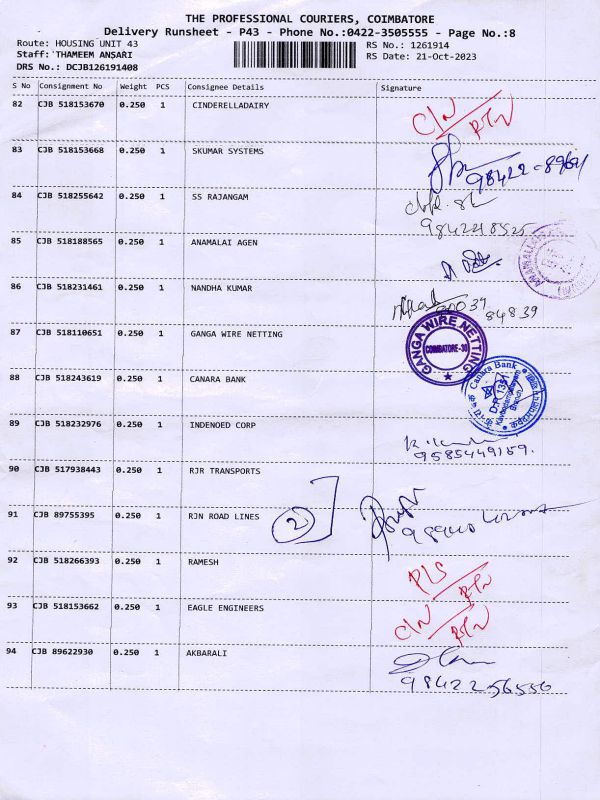 THE PROFESSIONAL COURIERS, COIMBATORE
Delivery Runsheet - P43 - Phone No.:0422-3505555 - Page No.:8
Route: HOUSING UNIT 43
RS No.: 1261914
Staff: THAMEEM ANSARI
RS Date: 21-Oct-2023
DRS No.: DCJB126191408
S No Consignment No Weight PCS Consignee Details Signature
82 CJB 518153670 0.250 1 CINDERELLADAIRY
C/N
RTN
83 CJB 518153668 0.250 1 SKUMAR SYSTEMS
84 CJB 518255642 0.250 1 SS RAJANGAM
85 CJB 518188565 0.250 1 ANAMALAI AGEN
86 CJB 518231461 0.250 1 NANDHA KUMAR
84839
87 CJB 518110651 0.250 1 GANGA WIRE NETTING
GANGA WIRE NETTING
COIMBATORE-30
88 CJB 518243619 0.250 1 CANARA BANK
Canara Bank
89 CJB 518232976 0.250 1 INDENOED CORP
9585449159.
90 CJB 517938443 0.250 1 RJR TRANSPORTS
91 CJB 89755395 0.250 1 RJN ROAD LINES
2
92 CJB 518266393 0.250 1 RAMESH
PLS
RTN
93 CJB 518153662 0.250 1 EAGLE ENGINEERS
C/N
RTN
94 CJB 89622930 0.250 1 AKBARALI
9842256550